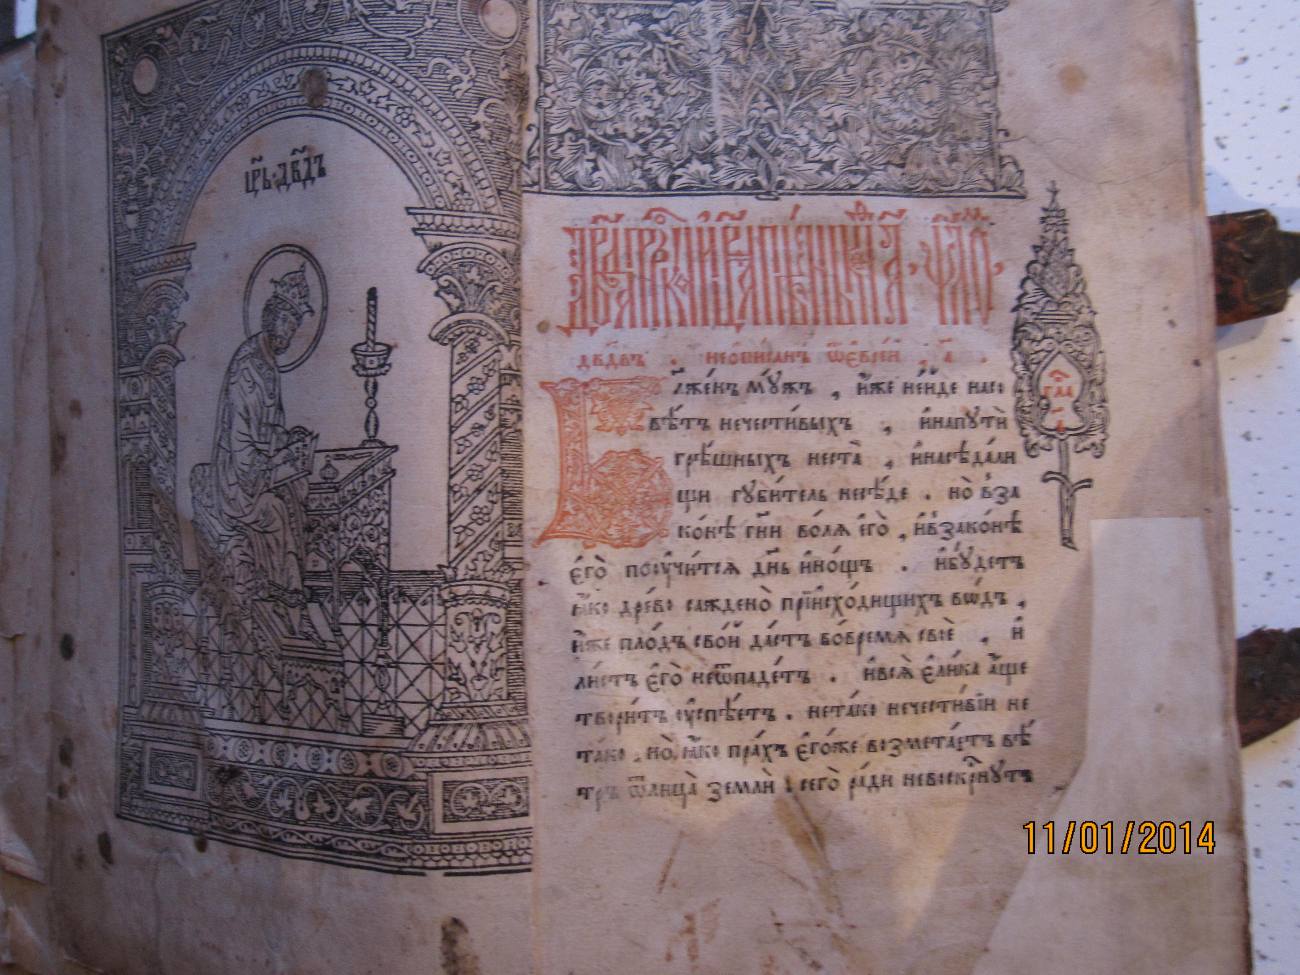 цр҃ь дв҃дъ
дв҃дъ . неѡписанъ ѿєврей , а҃ .
Бл҃же́нъ мꙋ́жъ , и҆́же не и҆́де насо
вѣ́тъ нечести́выхъ , и҆ напꙋтѝ
грѣ́шныхъ неста̀ , и҆ насѣда́ли
щи гꙋби́тель несѣ́де . но̀ вза
ко́нѣ гн҃и во́лѧ є҆го̀ , и҆ взако́нѣ
є҆го̀ поꙋчи́тсѧ дн҃ь и҆но́щь . и҆бꙋ́детъ
ꙗ҆́ко дре́во саждено̀ приисхо́дищихъ во́дъ ,
и҆́же пло́дъ сво́й да́стъ вовре́мѧ своѐ , и҆
ли́стъ є҆го̀ неѿпаде́тъ . и҆всѧ̀ є҆ли́ка а҆́ще
твори́тъ ᲂу҆спѣ́етъ . нета́ко нечести́вїи не
та́ко . но̀ ꙗ҆́ко пра́хъ є҆го́же возмета́етъ вѣ́
тръ ѿлица̀ землѝ . сего̀ ра́ди невоскр҃нꙋтъ
гла
11/01/2014